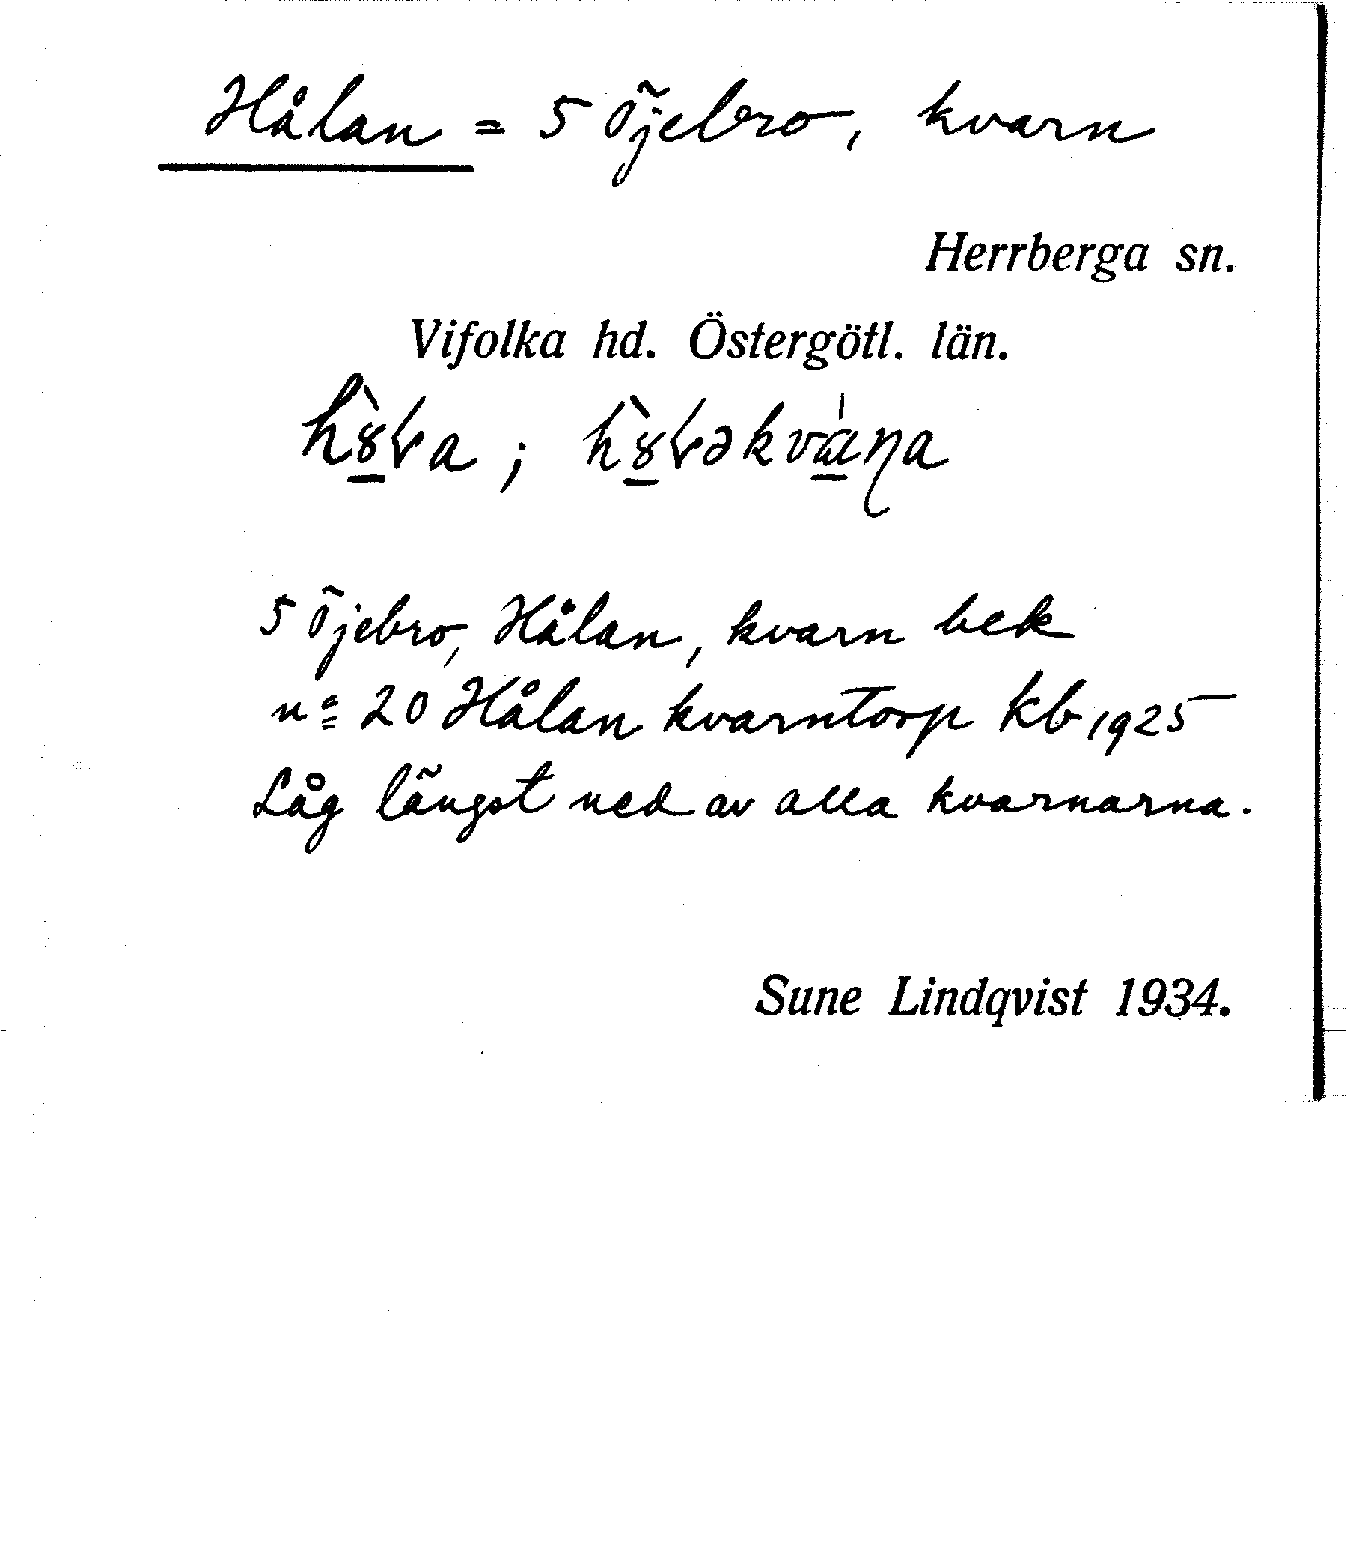 Hålan = 5 Öjebro, kvarn
Herrberga sn.
Vifolka hd. Östergötl. län.
5 Öjebro, Hålan, kvarn bek
nº 20 Hålan kvarntorp kb 1925
Låg längst ned av alla kvarnarna.
Sune Lindqvist 1934.